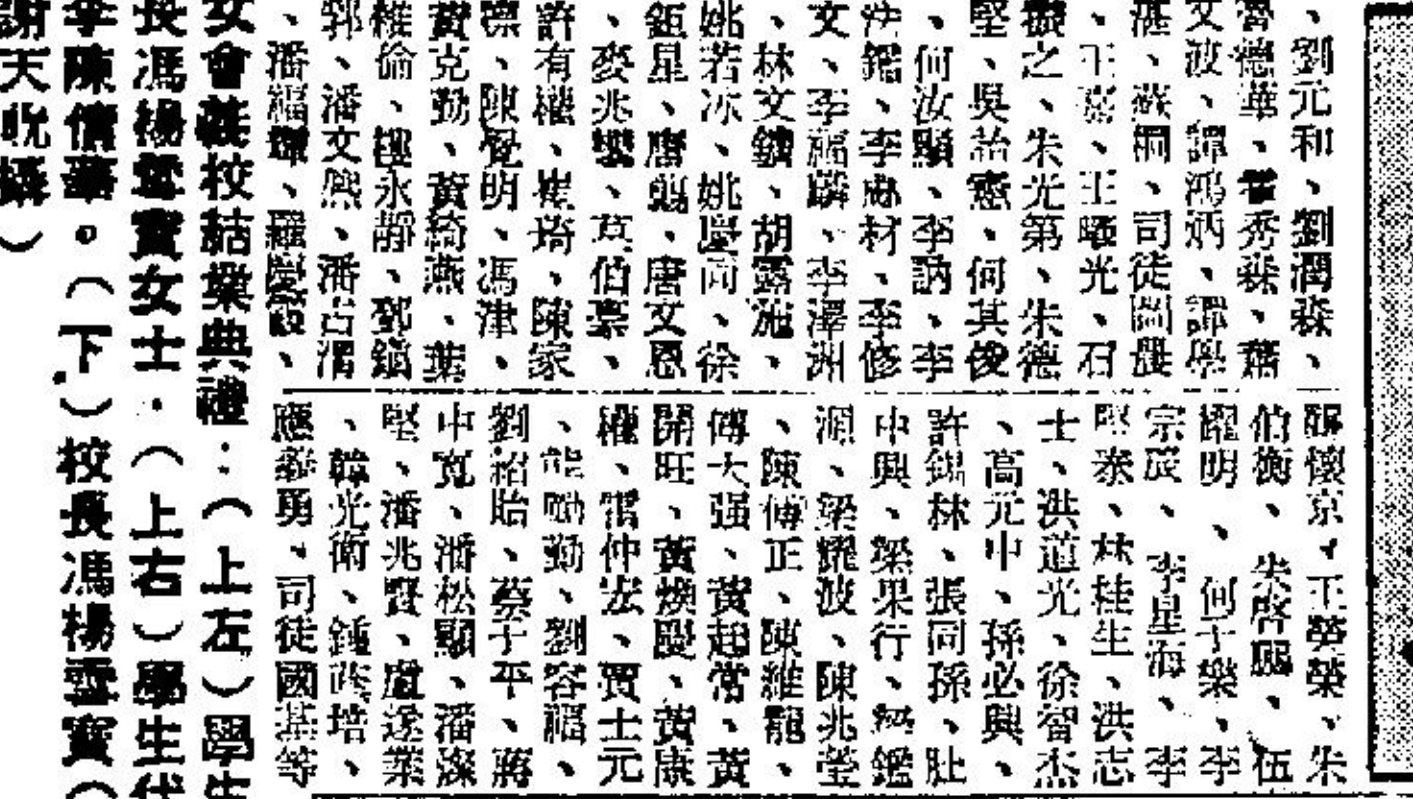 、劉元和、劉潤森、
曾德華、曾秀森、葉
文波、譚鴻炳、譚學
湛、蘇桐、司徒圖
、王嘉、王曦光、石
之、朱光第、朱德
堅、吳詒憲、何其俊
、何汝顯、李訥、李
鑑、李應材、李修
文、李福麟、李澤洲
、林文鏞、胡露施、
姚若冰、姚慶同、徐
鉅星、唐翹、唐文恩
、麥兆、莫伯豪、
許有權、崔琦、陳家
漂、陳覺明、馮津、
黃克勤、黃綺燕、葉
維倫、樓永靜、鄧鎮
郭、潘文熙、潘古渭
、潘福輝、羅慶毅、
懷京、王勞榮、朱
伯衡、朱啓賜、伍
耀明、何子樂、李
宗辰、李星海、李
堅泰、林桂生、洪志
士、洪道光、徐智杰
、高元中、孫必興、
許錫林、張同孫、杜
中興、梁果行、梁鑑
源、梁耀波、陳兆瑩
、陳傅正、陳維龍、
傅大强、黃起常、黃
開旺、黃煥慶、黃康
權、雷仲宏、賈士元
、熊勵勤、劉容福、
劉紹貽、蔡子平、蔣
中寬、潘松顯、潘燊
堅、潘兆賢、盧遂業
、韓光衛、鍾啟培、
應泰勇、司徒國基等
女會義校結業典禮：（上左）學生
長馮楊雪寶女士．（上右）學生代
李陳倩華。（下）校長馮楊雪寶（
謝天晄攝）